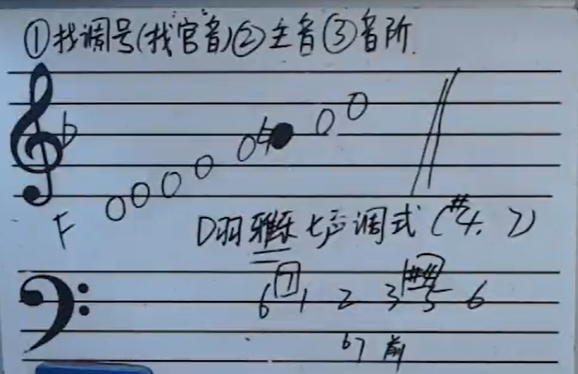 ①找调号(找宫音)②主音③音阶
F
D羽雅乐七声调式(#4、7)
6 7 1 2 3 #4 5 6
b7 前